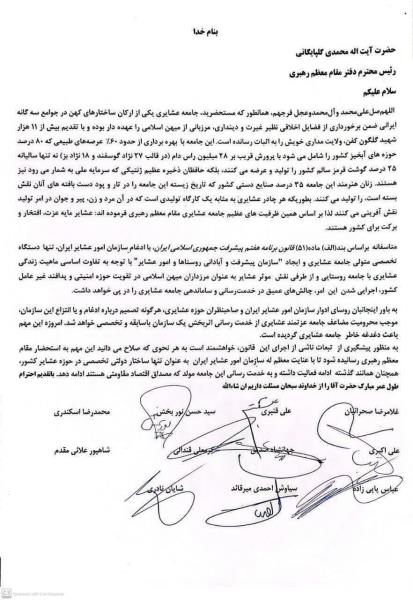 بنام خدا
حضرت آیت اله محمدی گلپایگانی
رئیس محترم دفتر مقام معظم رهبری
سلام علیکم
اللهم‌صل‌علی‌محمد و آل‌محمدوعجل فرجهم، همانطور که مستحضرید، جامعه عشایری یکی از ارکان ساختارهای کهن در جوامع سه گانه
ایرانی ضمن برخورداری از فضایل اخلاقی نظیر غیرت و دینداری، مرزبانی از میهن اسلامی را عهده دار بوده و با تقدیم بیش از ۱۱ هزار
شهید گلگون کفن، ولایت مداری خویش را به اثبات رسانده است. این جامعه با بهره برداری از حدود ۶۰٪ عرصه‌های طبیعی که ۸۰ درصد
حوزه های آبخیز کشور را شامل می‌شود با پرورش قریب بر ۲۸ میلیون راس دام (در قالب ۲۷ نژاد گوسفند و ۱۸ نژاد بز) نه تنها سالیانه
۲۵ درصد گوشت قرمز سالم کشور را تولید و عرضه می کنند، بلکه حافظان ذخیره عظیم ژنتیکی که سرمایه ملی به شمار می رود نیز
هستند. زنان هنرمند این جامعه ۳۵ درصد صنایع دستی کشور که تاریخ زسته این جامعه را در تار و پود دست بافته های آنان نقش
بسته است، را تولید می کنند. بطوریکه هر چادر عشایری به مثابه یک کارگاه تولیدی است که در آن مرد و زن، پیر و جوان در امر تولید
نقش آفرینی می کنند لذا بر اساس همین ظرفیت های عظیم جامعه عشایری مقام معظم رهبری فرموده اند: عشایر مایه عزت، افتخار و
برکت برای کشور هستند.
متاسفانه براساس بند(الف) ماده(۵۱) قانون برنامه هفتم پیشرفت جمهوری اسلامی ایران، با ادغام سازمان امور عشایر ایران، تنها دستگاه
تخصصی متولی جامعه عشایری و ایجاد "سازمان پیشرفت و آبادانی روستاها و امور عشایر" با توجه به تفاوت اساسی ماهیت زندگی
عشایری با جامعه روستایی و از طرفی نقش موثر عشایر به عنوان مرزداران میهن اسلامی در تقویت حوزه امنیتی و پدافند غیر عامل
کشور، اجرایی شدن این امر، چالش‌های عمیق در خدمت‌رسانی و ساماندهی جامعه عشایری را در پی خواهد داشت.
به باور اینجانبان روسای ادوار سازمان امور عشایر ایران و صاحبنظران حوزه عشایری، هرگونه تصمیم درباره ادغام و یا انتزاع این سازمان،
موجب محرومیت مضاعف جامعه عزتمند عشایری از خدمت رسانی اثربخش یک سازمان باسابقه و تخصصی خواهد شد. امروزه این مهم
باعث دغدغه خاطر جامعه عشایری گردیده است.
به منظور پیشگیری از تبعات ناشی از اجرای این قانون، خواهشمند است به هر نحوی که صلاح می دانید این مهم به استحضار مقام
معظم رهبری رسانیده شود تا با عنایت معظم له سازمان امور عشایر ایران به عنوان تنها ساختار دولتی تخصصی در حوزه عشایر کشور،
همچنان همانند گذشته ادامه فعالیت داشته و به خدمت‌رسانی به این جامعه مولد که مصداق اقتصاد مقاومتی هستند ادامه دهد. باتقدیم احترام
طول عمر مبارک حضرت آقا را از خداوند سبحان مسئلت داریم ان شاءالله
غلامرضا صحرائیان علی قنبری سید حسن نور بخش محمدرضا اسکندری
علی اکبری جهانشاه صدیق کرمعلی قندالی شاهپور علائی مقدم
عباس پاپی زاده سیاوش احمدی میرقائد شایان نادری